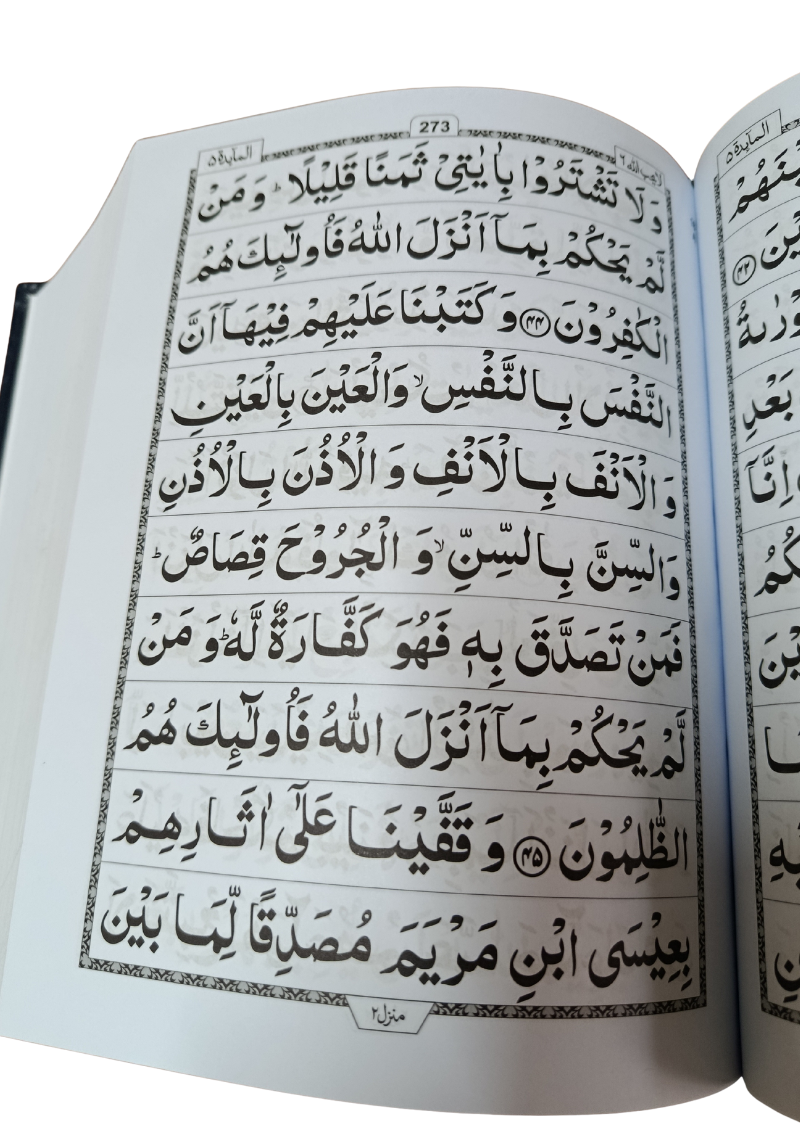 273
المآىِٕدة ۵
لا يحب الله ٦
وَلَا تَشْتَرُوْا بِاٰيٰتِىْ ثَمَنًا قَلِيْلًا ؕ وَ مَنْ
لَّمْ يَحْكُمْ بِمَاۤ اَنْزَلَ اللّٰهُ فَاُولٰٓئِكَ هُمُ
الْكٰفِرُوْنَ ۴۴ وَ كَتَبْنَا عَلَيْهِمْ فِيْهَاۤ اَنَّ
النَّفْسَ بِالنَّفْسِ ۙ وَالْعَيْنَ بِالْعَيْنِ
وَ الْاَنْفَ بِالْاَنْفِ وَ الْاُذُنَ بِالْاُذُنِ
وَالسِّنَّ بِالسِّنِّ ۙ وَ الْجُرُوْحَ قِصَاصٌ ؕ
فَمَنْ تَصَدَّقَ بِهٖ فَهُوَ كَفَّارَةٌ لَّهٗ ؕ وَ مَنْ
لَّمْ يَحْكُمْ بِمَاۤ اَنْزَلَ اللّٰهُ فَاُولٰٓئِكَ هُمُ
الظّٰلِمُوْنَ ۴۵ وَ قَفَّيْنَا عَلٰٓى اٰثَارِهِمْ
بِعِيْسَى ابْنِ مَرْيَمَ مُصَدِّقًا لِّمَا بَيْنَ
منزل ٢
المآىِٕدة ۵
۴۳
بَعْدِ